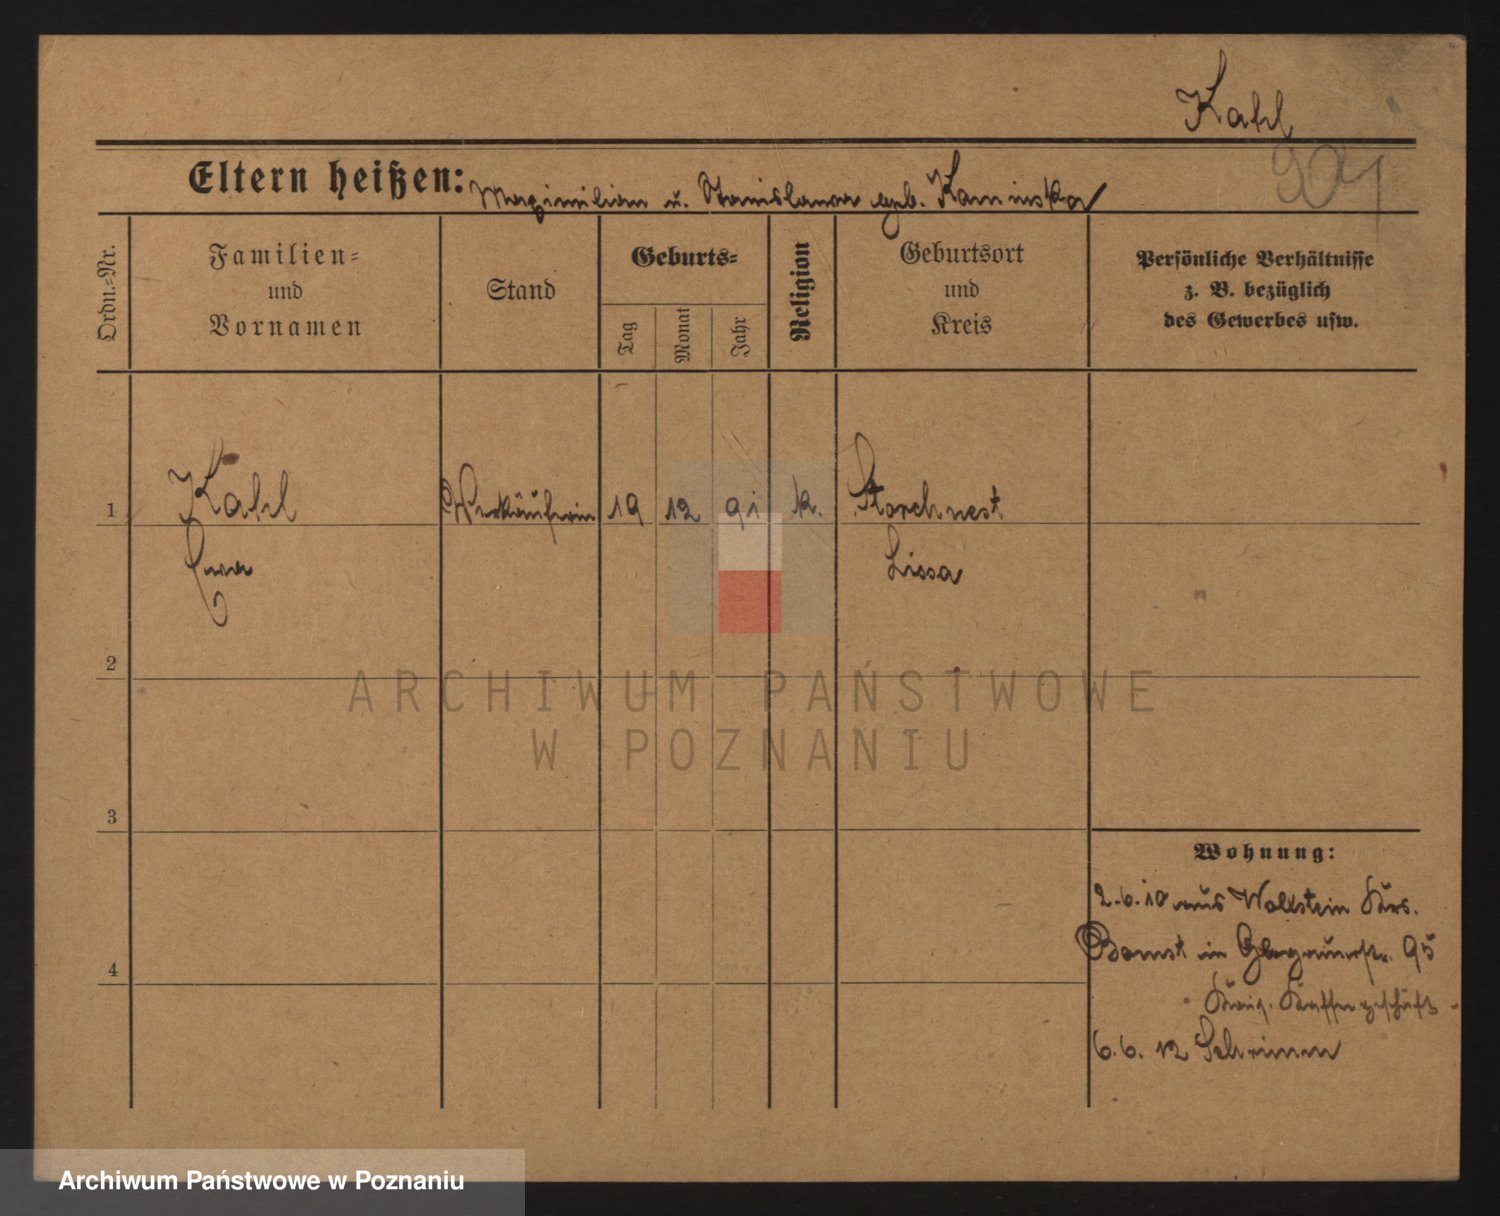 Kahl
Eltern heißen: Maximilian u. Stanislawa geb. Kaminska
Ordn.=Nr.
Familien=
und
Vornamen
Stand
Geburts=
Tag
Monat
Jahr
Religion
Geburtsort
und
Kreis
Persönliche Verhältnisse
z. B. bezüglich
des Gewerbes usw.
1 Kahl Verkäuferin 19 12 91 k. Storchnest
Ewa Lissa
2
ARCHIWUM PAŃSTWOWE
W POZNANIU
3
Wohnung:
2.6.10 aus Wollstein Krs.
Bomst in Glogauerstr. 95
Kais. Kaffeegeschäft
4
6.6.12 Schrimm
Archiwum Państwowe w Poznaniu